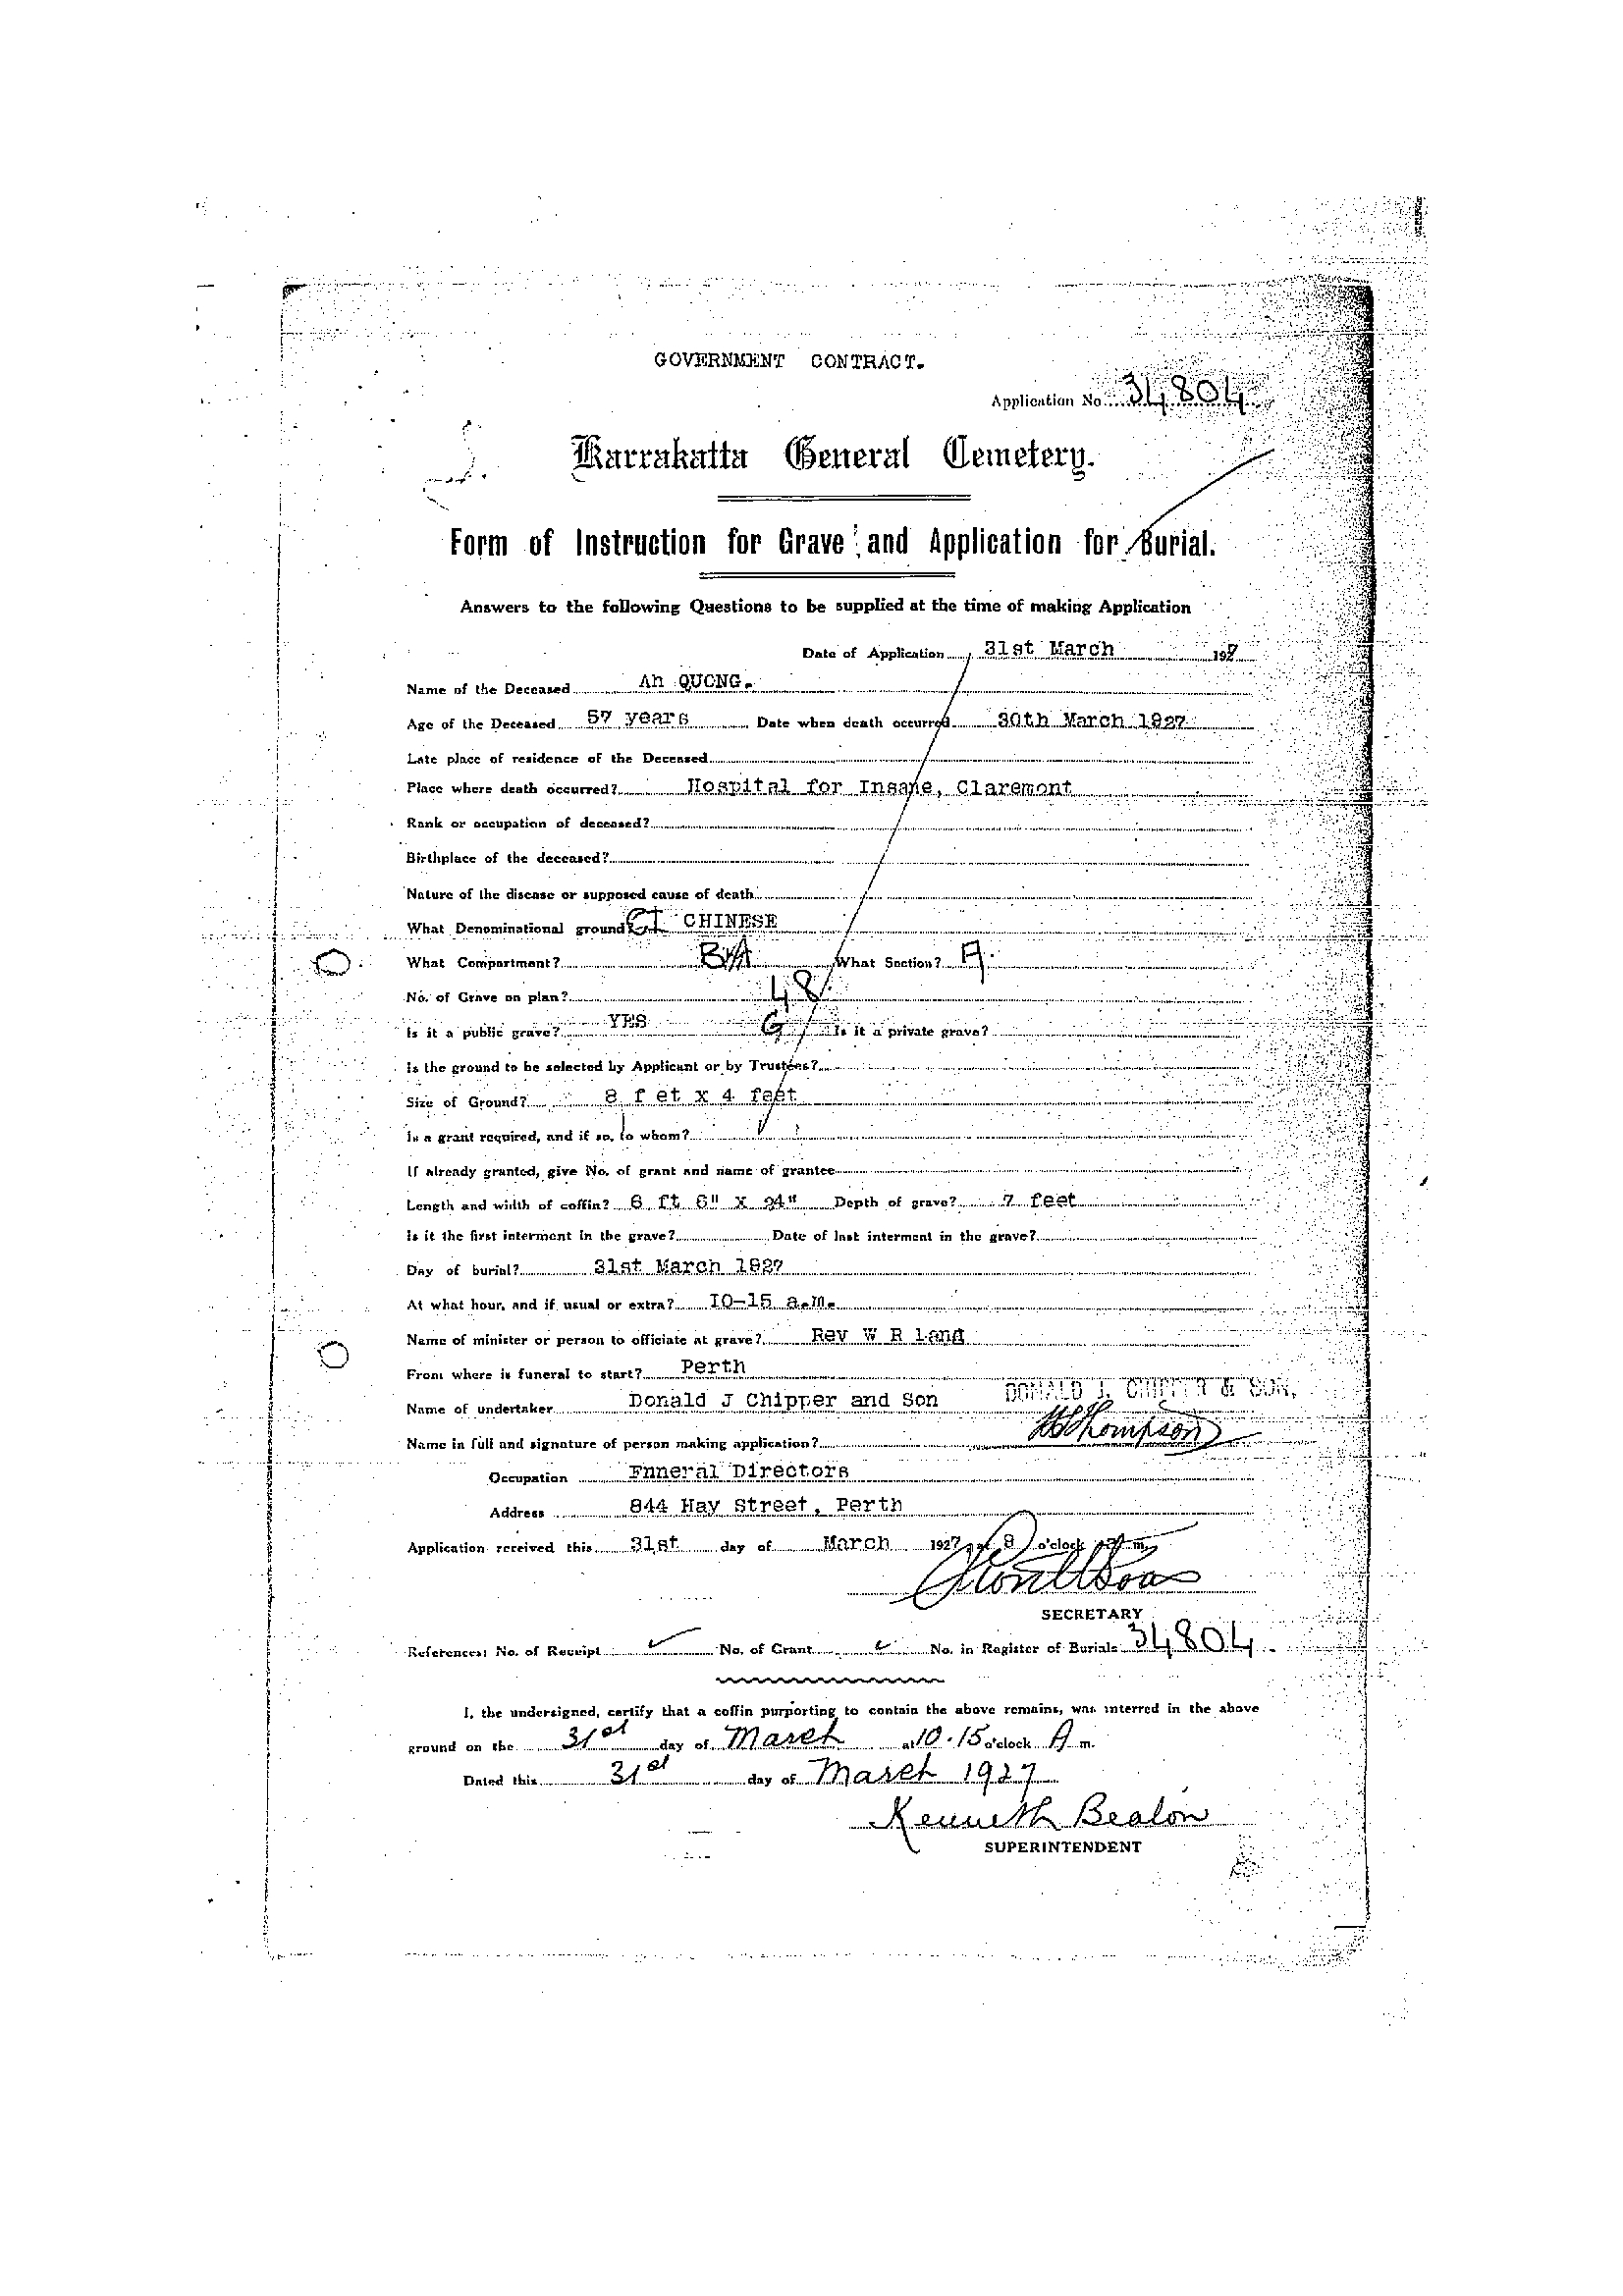 GOVERNMENT CONTRACT.
Application No. 34804
Karrakatta General Cemetery.
Form of Instruction for Grave and Application for Burial.
Answers to the following Questions to be supplied at the time of making Application
Date of Application 31st March 1927
Name of the Deceased Ah QUONG.
Age of the Deceased 57 years Date when death occurred 30th March 1927
Late place of residence of the Deceased
Place where death occurred? Hospital for Insane, Claremont
Rank or occupation of deceased?
Birthplace of the deceased?
Nature of the disease or supposed cause of death
What Denominational ground? CHINESE
What Compartment? What Section? A.
No. of Grave on plan? 48
Is it a public grave? YES G Is it a private grave?
Is the ground to be selected by Applicant or by Trustees?
Size of Ground? 8 f et x 4 feet
Is a grant required, and if so, to whom?
If already granted, give No. of grant and name of grantee
Length and width of coffin? 6 ft 6" x 24" Depth of grave? 7 feet
Is it the first interment in the grave? Date of last interment in the grave?
Day of burial? 31st March 1927
At what hour, and if usual or extra? 10-15 a.m.
Name of minister or person to officiate at grave? Rev W R Land
From where is funeral to start? Perth
DONALD J. CHIPPER & SON,
Name of undertaker Donald J Chipper and Son
Name in full and signature of person making application? Thompson
Occupation Funeral Directors
Address 844 Hay Street, Perth
Application received this 31st day of March 1927 at 9 o'clock m.
SECRETARY
References: No. of Receipt No. of Grant No. in Register of Burials 34804
I, the undersigned, certify that a coffin purporting to contain the above remains, was interred in the above
ground on the 31st day of March at 10.15 o'clock A m.
Dated this 31st day of March 1927
Kenneth Bealon
SUPERINTENDENT